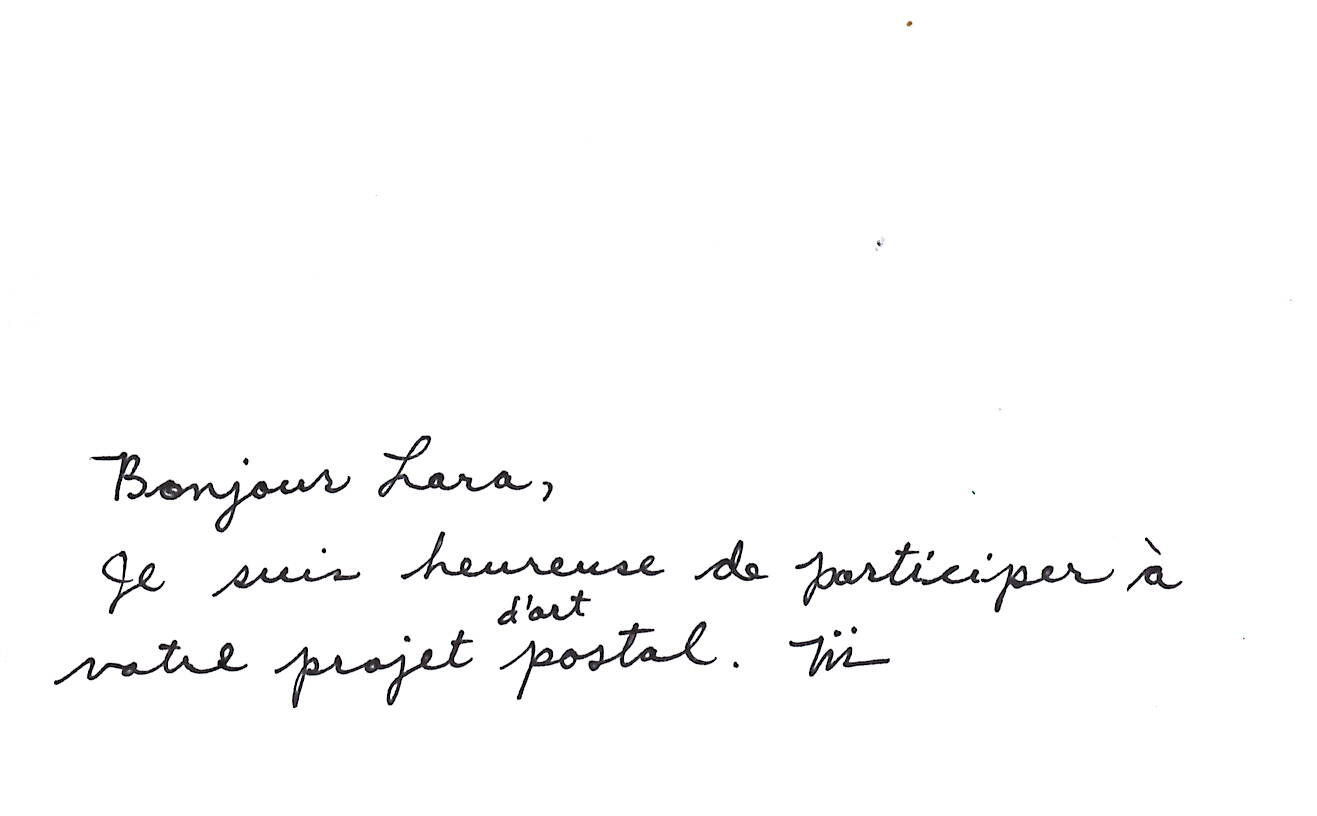 Bonjour Lara,
Je suis heureuse de participer à
d'art
votre projet postal.